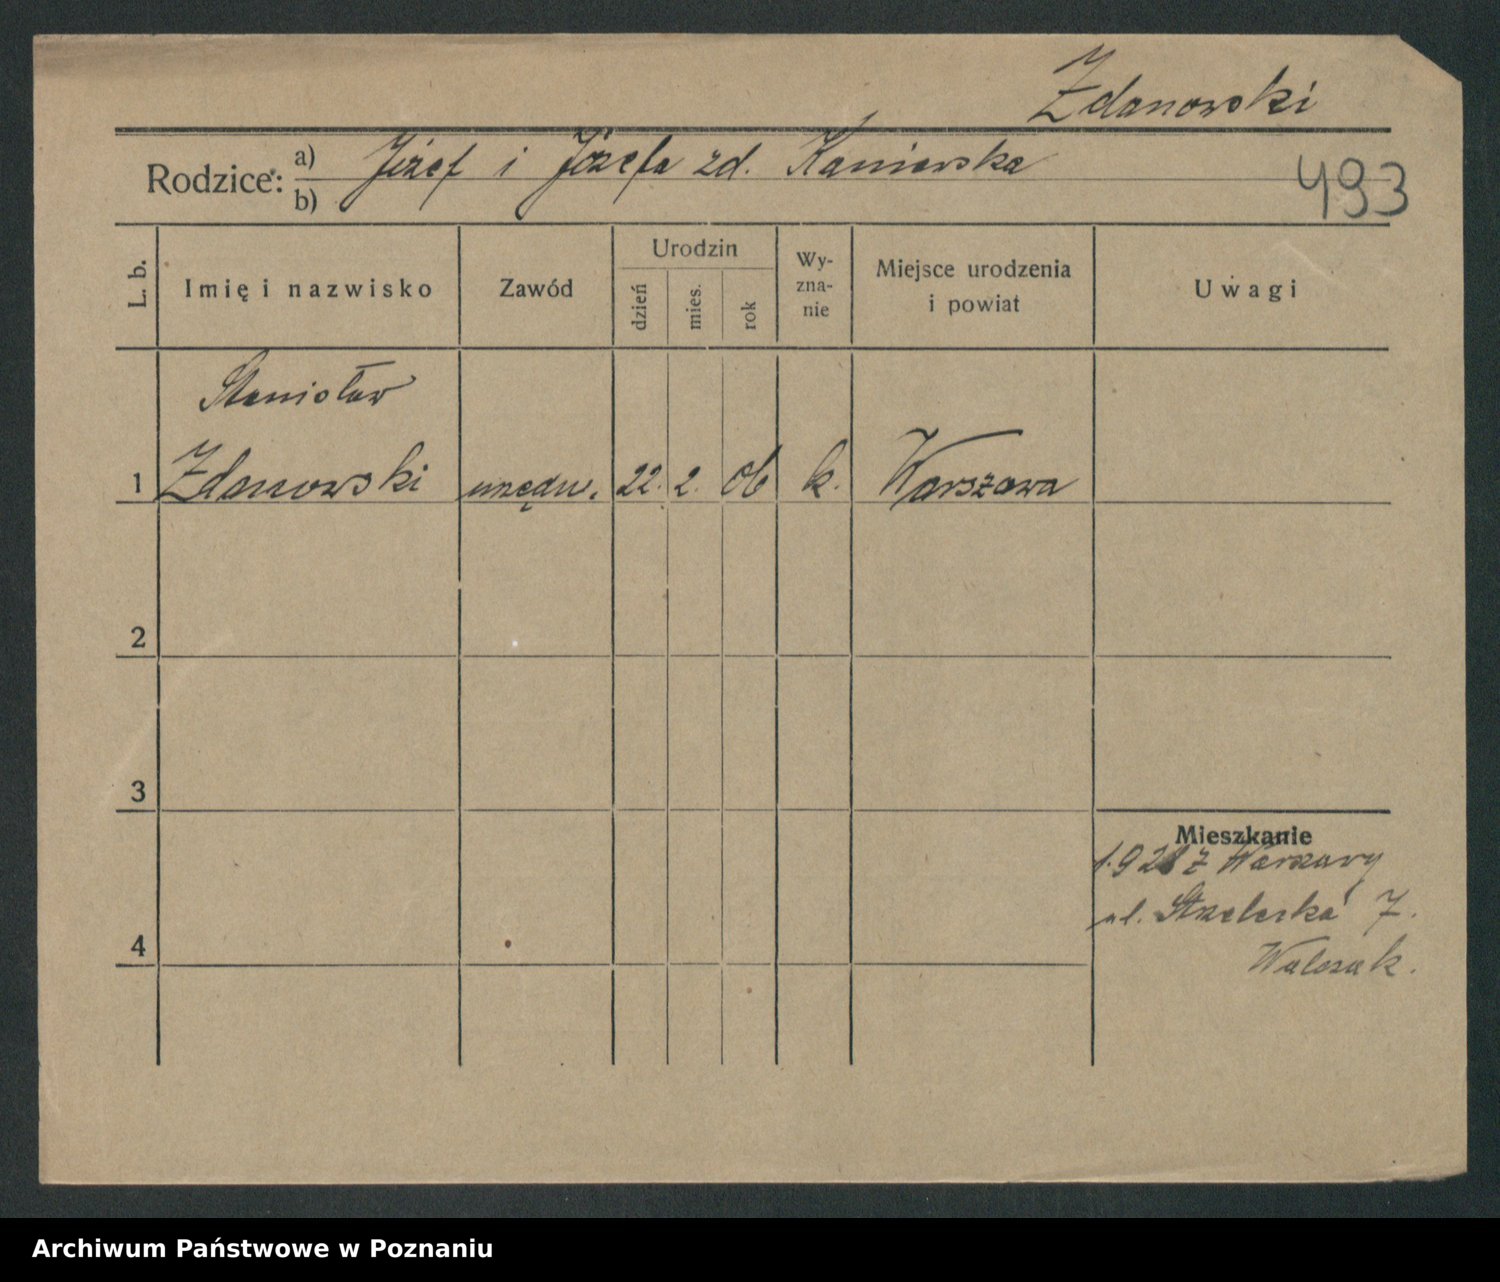 Zdanowski
Rodzice: a) Józef i Józefa zd. Kaniewska
b)
493
L. b.
Imię i nazwisko
Zawód
Urodzin
dzień
mies.
rok
Wy-
zna-
nie
Miejsce urodzenia
i powiat
Uwagi
Stanisław
1 Zdanowski urzędn. 22. 2. 06 k. Warszawa
2
3
Mieszkanie
z Warszawy
ul. Strzelecka 7.
4
Walczak.
Archiwum Państwowe w Poznaniu